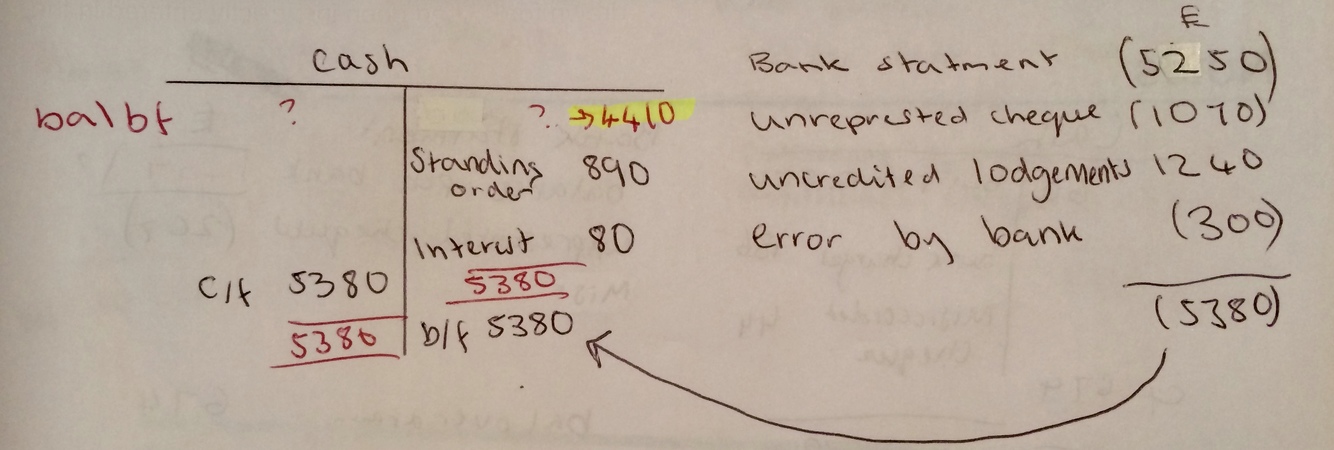 £
cash
Bank statment (5250)
bal bf ? ? → 4410
unreprested cheque (1070)
Standing order 890
uncredited lodgements 1240
Interest 80
error by bank (300)
c/f 5380 5380
(5380)
5380 b/f 5380